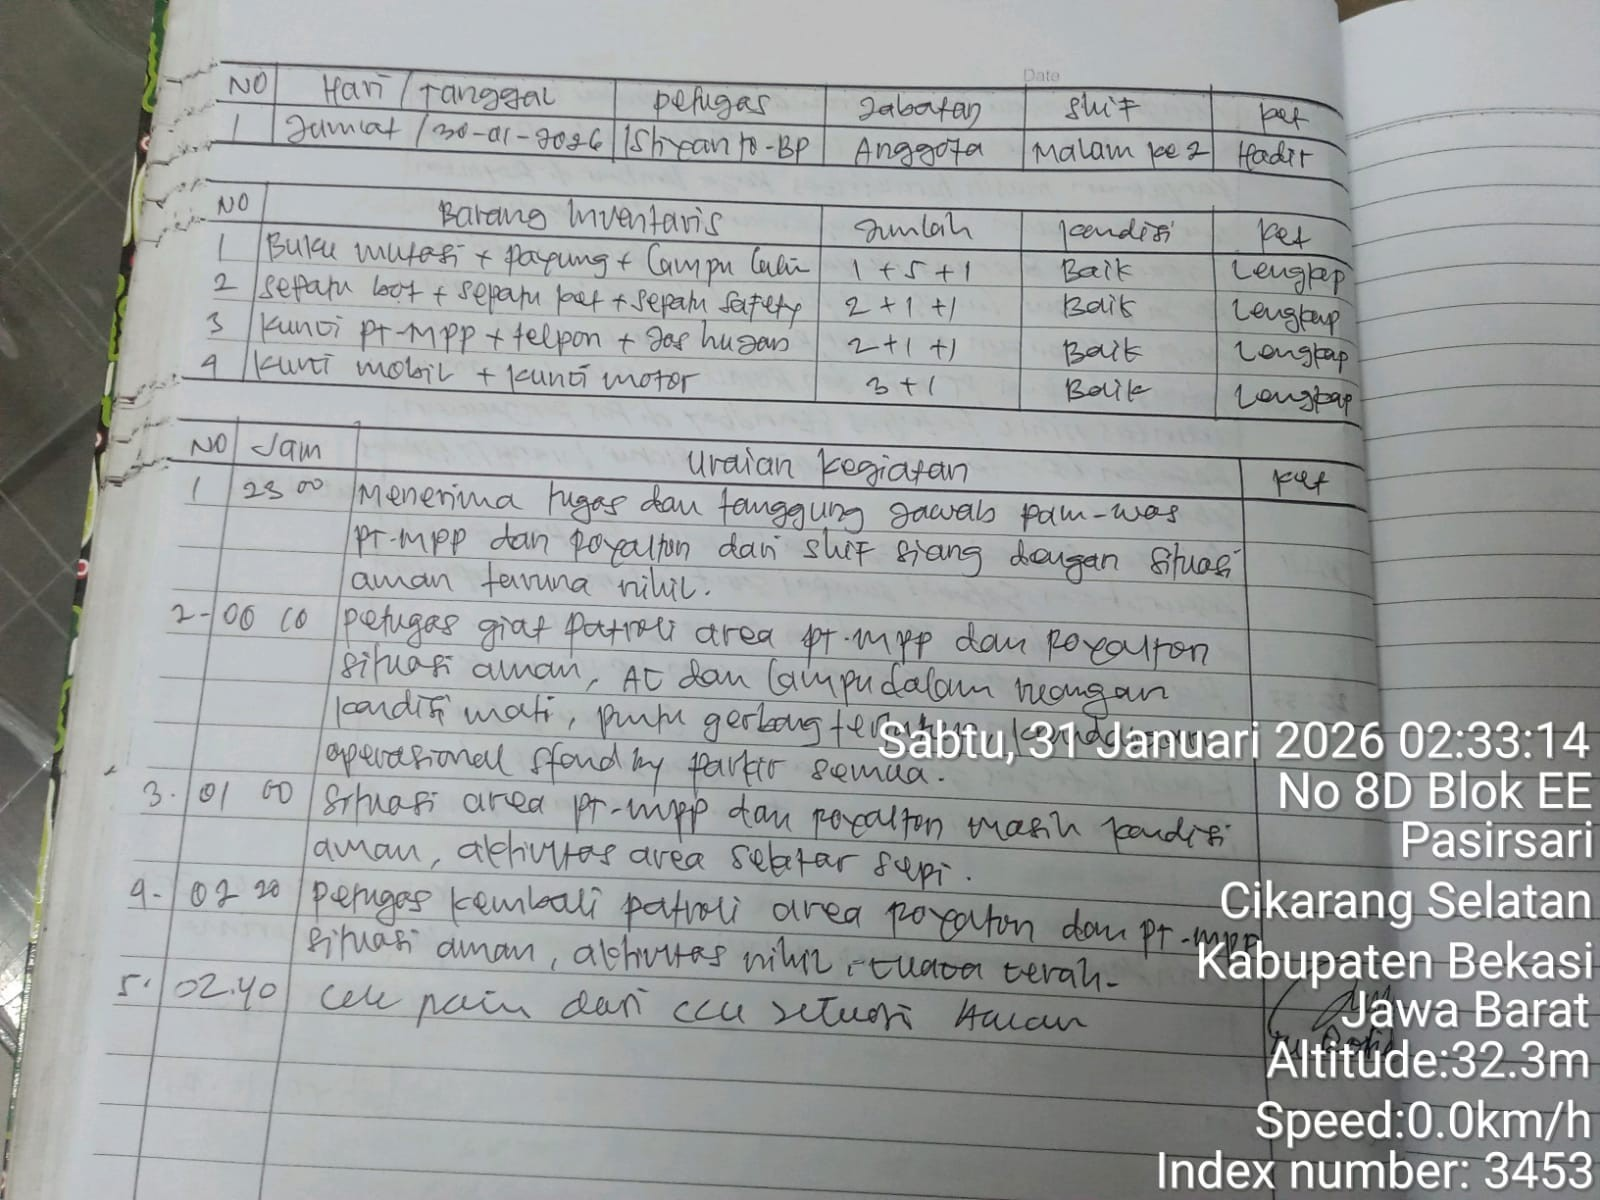 Date
NO Hari / Tanggal petugas Jabatan Shif ket
1 Jumat / 30-01-2026 Istiyanto-BP Anggota Malam ke 2 Hadir
NO Barang Inventaris Jumlah Kondisi Ket
1 Buku mutasi + Payung + Lampu Lalin 1 + 5 + 1 Baik Lengkap
2 Sepatu bot + sepatu pet + sepatu safety 2 + 1 + 1 Baik Lengkap
3 Kunci pt-MPP + telpon + Jas hujan 2 + 1 + 1 Baik Lengkap
4 Kunci mobil + Kunci motor 3 + 1 Baik Lengkap
NO Jam Uraian Kegiatan Ket
1 23 00 Menerima tugas dan tanggung Jawab pam-was
pt-mpp dan Royalton dari shif siang dengan situasi
aman nihil.
2- 00 10 petugas giat patroli area pt-mpp dan Royalton
situasi aman, AC dan Lampu dalam ruangan
kondisi mati, pintu gerbang
operasional stand by parkir semua.
3. 01 00 Situasi area pt-mpp dan royalton masih kondisi
aman, aktivitas area sekitar sepi.
4. 02 20 petugas kembali patroli area royalton dan pt-mpp
situasi aman, aktivitas nihil,
5. 02.40 Cek dari situasi Aman
Sabtu, 31 Januari 2026 02:33:14
No 8D Blok EE
Pasirsari
Cikarang Selatan
Kabupaten Bekasi
Jawa Barat
Altitude:32.3m
Speed:0.0km/h
Index number: 3453